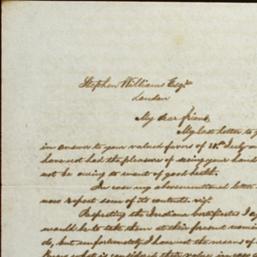 Stephen Williams Esqr
London
My dear friend,
My last letter to
in answer to your valued favors of
have not had the pleasure of seeing your hand
not be owing to want of good health.
In now my abovementioned letter
now repeat some of its contents.
Respecting the Indiana Certificates I
would be to take them at their present
do, but unfortunately I have not the means of